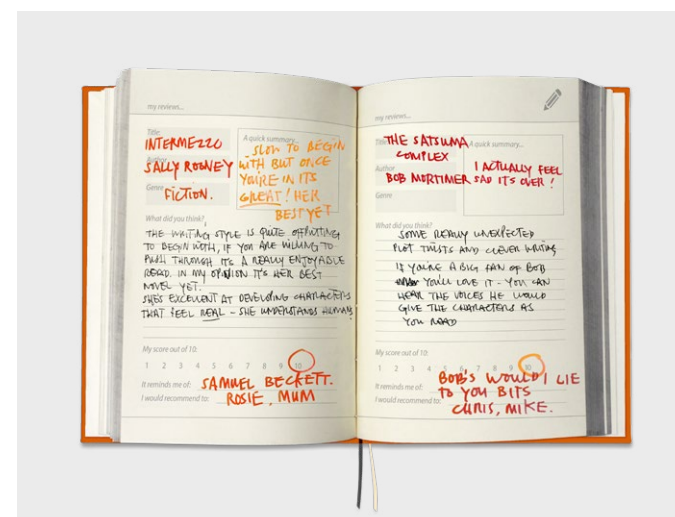 my reviews...
Title
INTERMEZZO
Author
SALLY ROONEY
Genre
FICTION.
A quick summary...
SLOW TO BEGIN
WITH BUT ONCE
YOU'RE IN ITS
GREAT! HER
BEST YET
What did you think?
THE WRITING STYLE IS QUITE OFFPUTTING
TO BEGIN WITH, IF YOU ARE WILLING TO
PUSH THROUGH ITS A REALLY ENJOYABLE
READ. IN MY OPINION IT'S HER BEST
NOVEL YET.
SHE'S EXCELLENT AT DEVELOPING CHARACTERS
THAT FEEL REAL - SHE UNDERSTANDS HUMANS
My score out of 10:
1 2 3 4 5 6 7 8 9 10
It reminds me of: SAMUEL BECKETT.
I would recommend to: ROSIE, MUM
my reviews...
Title
THE SATSUMA
COMPLEX
Author
BOB MORTIMER
Genre
A quick summary...
I ACTUALLY FEEL
SAD IT'S OVER!
What did you think?
SOME REALLY UNEXPECTED
PLOT TWISTS AND CLEVER WRITING
IF YOU'RE A BIG FAN OF BOB
YOU'LL LOVE IT - YOU CAN
HEAR THE VOICES HE WOULD
GIVE THE CHARACTERS AS
YOU READ
My score out of 10:
1 2 3 4 5 6 7 8 9 10
It reminds me of: BOB'S WOULD I LIE
TO YOU BITS
I would recommend to: CHRIS, MIKE.